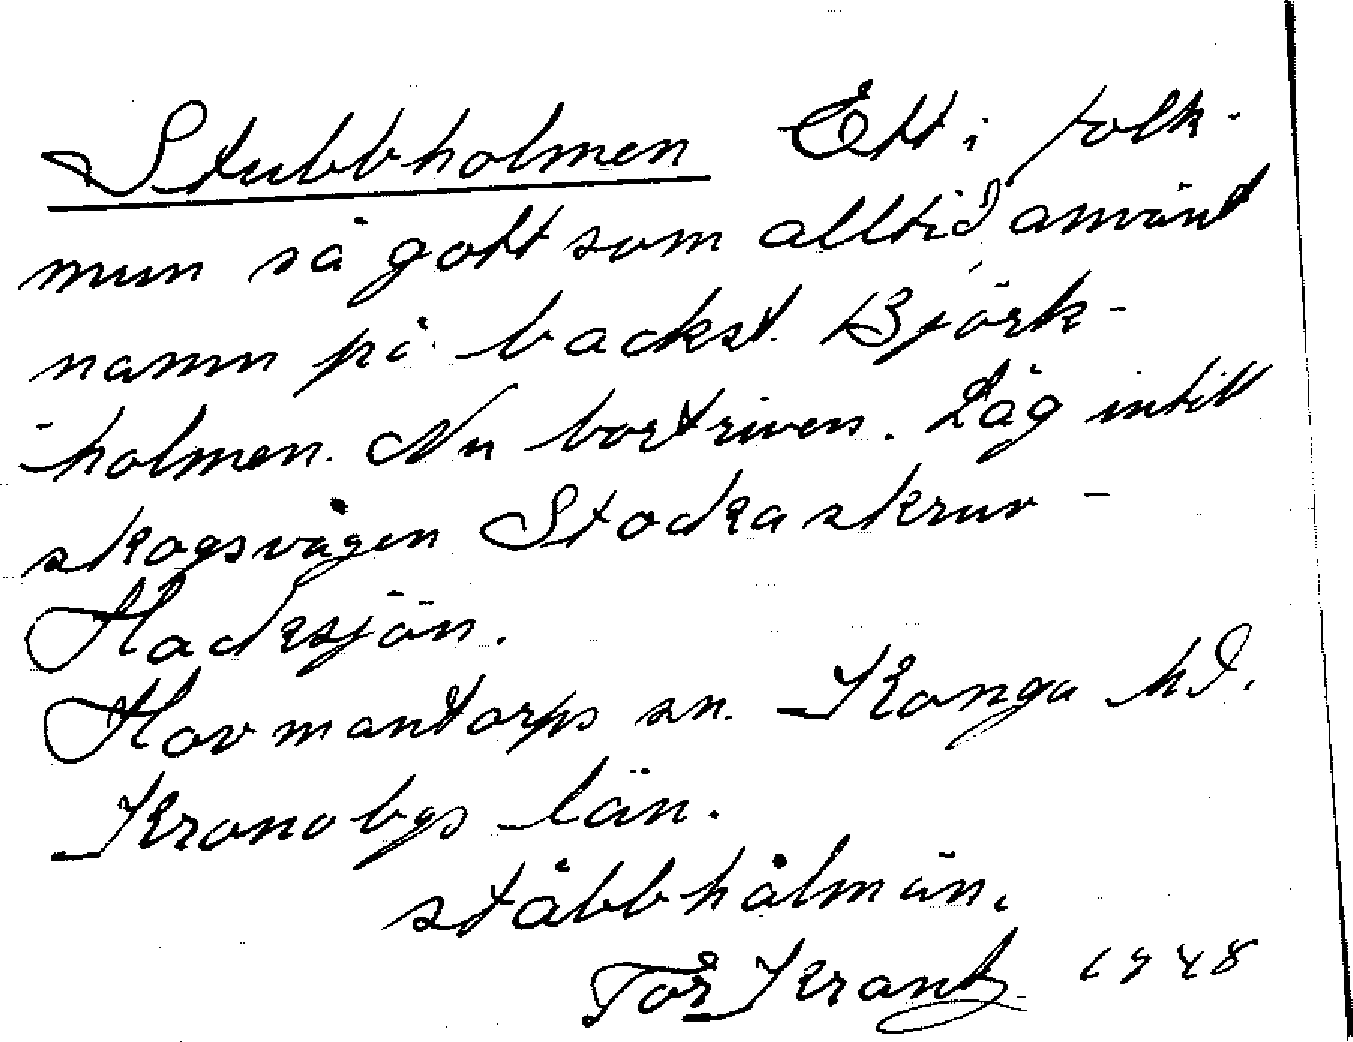 Stubbholmen Ett i folk-
mun så gott som alltid använt
namn på backst. Björk-
holmen. Nu bortriven. Låg intill
skogsvägen Stockaskruv -
Hacksjön.
Hovmantorps sn. Konga hd.
Kronobgs län.
ståbbhålmän.
Tor Krantz 1948